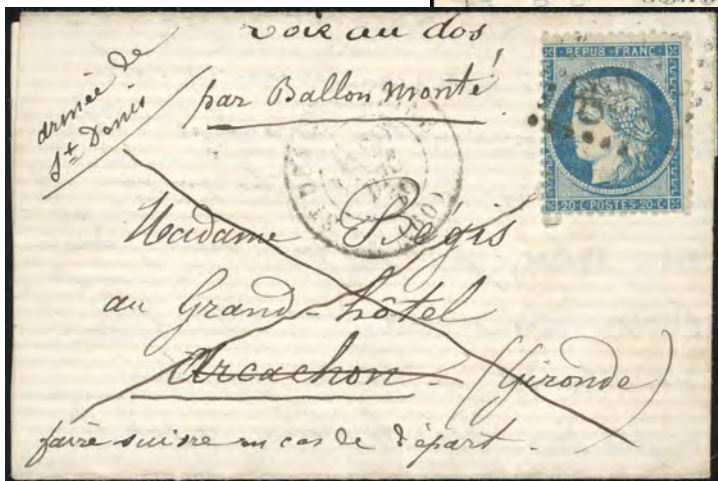 voir au dos
armée de
St Denis
par Ballon monté
REPUB·FRANC·
20·C·POSTES·20·C·
(60)
Madame Bégis
au Grand-hôtel
Arcachon. (Gironde)
faire suivre en cas de départ.